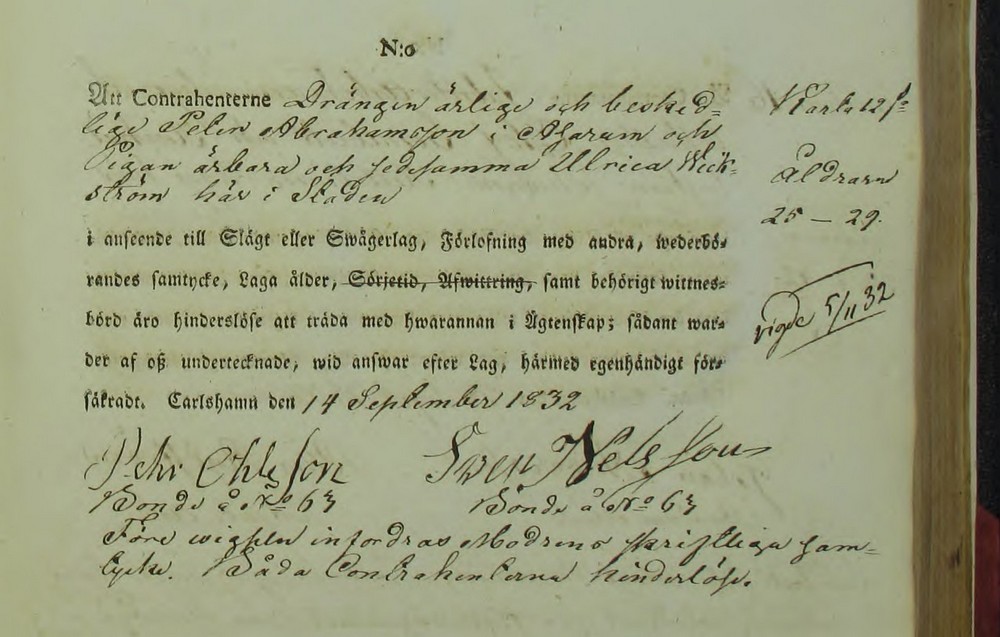 N:o
Att Contrahenterne Drängen ärlige och besked=
lige Peter Abrahamsson i Asarum och
Pigan ärbara och sedesamma Ulrica Weck=
ström här i Staden
i anseende till Slägt eller Swågerlag, Förlofning med andra, wederbö=
randes samtycke, Laga ålder, Sörjetid, Afwittring, samt behörigt wittnes=
börd äro hinderslöse att träda med hwarannan i Ägtenskap; sådant war=
der af oß undertecknade, wid answar efter Lag, härmed egenhändigt för=
säkradt. Carlshamn den 14 September 1832
Pehr Ohlsson Swen Nelsson
Bonde å No 63 Bonde å No 63
Före wigseln infordras Modrens skriftliga sam=
tycke. Båda Contrahenterna hinderlöse.
Karta 12 s
Åldrarn
25 — 29.
vigde 5/11 32